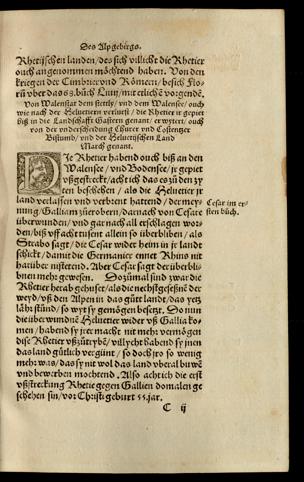 Des Alpgebirgs.
Rhetijschen landen/des sich villicht die Rhetier
ouch angenommen möchtend haben. Von den
kriegen der Cimbrier vnd Römern/besich Flo-
rū über das 68.bůch Liuij/mit etlichē vorgendē.
Von Walenstat dem stettly/vnd dem Walensee/ouch
wie nach der Heluetiern verlurst/die Rhetier jr gepiet
biß in die Landschafft Gastern genant/erwytert/ouch
von der vnderscheidung Churer vnd Costentzer
Bistumb/vnd der Heluetijschen Land
March genant.
DJe Rhetier habend ouch biß an den
Walensee/vnd Bodensee/jr gepiet
vßgestreckt/acht ich das es zů den zy
ten beschehen/als die Heluetier jr
land verlassen vnd verbrent hattend/der mey
nung/Galliam zů erobern/darnach von Cesare
überwunden/vnd gar nach all erschlagen wor-
den/biß vff ach tusent allein so überbliben/als
Strabo sagt/die Cesar wider heim in jr landt
schickt/damit die Germanier ennet Rhins nit
harüber nistetend. Aber Cesar sagt der überbli-
bnen mehr gewesen. Dozůmal sind zwar die
Rhetier herab gehuset/als die nechstgeseßnē der
weyd/vß den Alpen in das gůt landt/das yetz
lär stůnd/so wyt sy gemögen besetzt. Do nun
die überwundnē Heluetier wider vß Gallia ko-
men/habend sy jrer macht nit mehr vermögen
dise Rhetier vßzůtrybē/villycht habend sy jnen
das land gůtlich vergünt/so doch jro so wenig
mehr was/das sy nit wol das land überal buwē
vnd bewerben mochtend. Also acht ich die erst
vßstreckung Rhetie gegen Gallien domalen ge
schehen sin/vor Christi geburt 55.jar.
Cesar im er-
sten bůch.
C ij